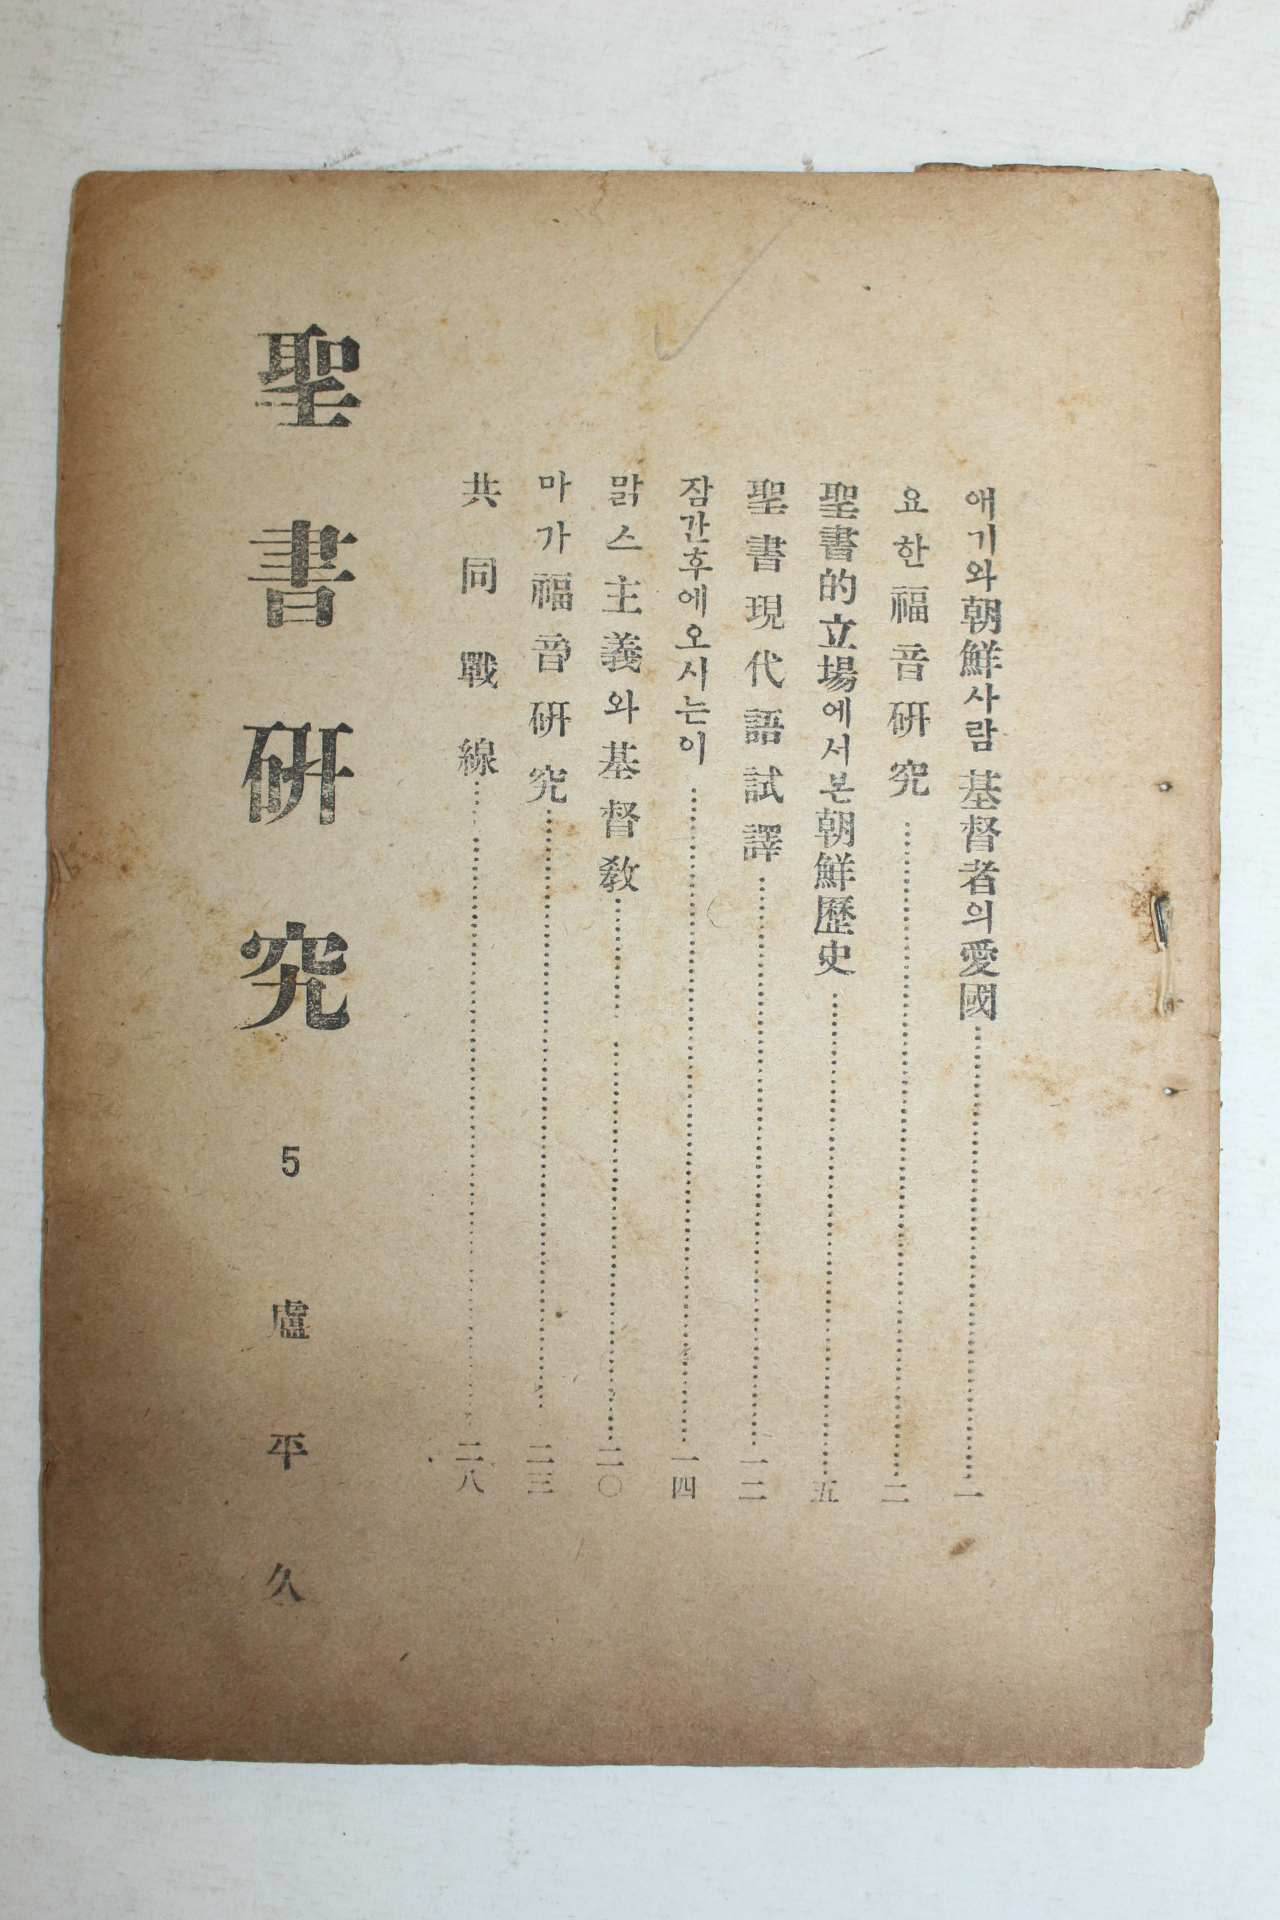 애기와朝鮮사람 基督者의愛國……一
요한福音硏究……二
聖書的立場에서본朝鮮歷史……五
聖書現代語試譯……一二
잠간후에오시는이……一四
맑스主義와基督敎……二〇
마가福音硏究……二三
共同戰線……二八
聖書硏究 5 盧平久